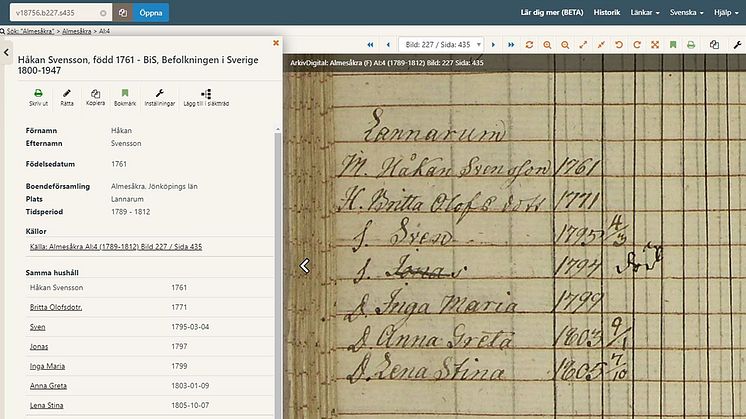 v18756.b227.s435
Öppna
Lär dig mer (BETA) Historik Länkar Svenska Hjälp
Sök: "Almesåkra" > Almesåkra > AI:4
Håkan Svensson, född 1761 - BiS, Befolkningen i Sverige
1800-1947
Skriv ut Rätta Kopiera Bokmärk Inställningar Lägg till i släktträd
Förnamn Håkan
Efternamn Svensson
Födelsedatum 1761
Boendeförsamling Almesåkra, Jönköpings län
Plats Lannarum
Tidsperiod 1789 - 1812
Källor
Källa: Almesåkra AI:4 (1789-1812) Bild 227 / Sida 435
Samma hushåll
Håkan Svensson 1761
Britta Olofsdotr. 1771
Sven 1795-03-04
Jonas 1797
Inga Maria 1799
Anna Greta 1803-01-09
Lena Stina 1805-10-07
Bild: 227 / Sida: 435
ArkivDigital: Almesåkra (F) AI:4 (1789-1812) Bild: 227 Sida: 435
Lannarum
M. Håkan Svensson 1761
H. Britta Olofs dott 1771
S. Sven 1795 4/3
S. Jonas 1797 död
D. Inga Maria 1799
D. Anna Greta 1803 9/1
D. Lena Stina 1805 7/10